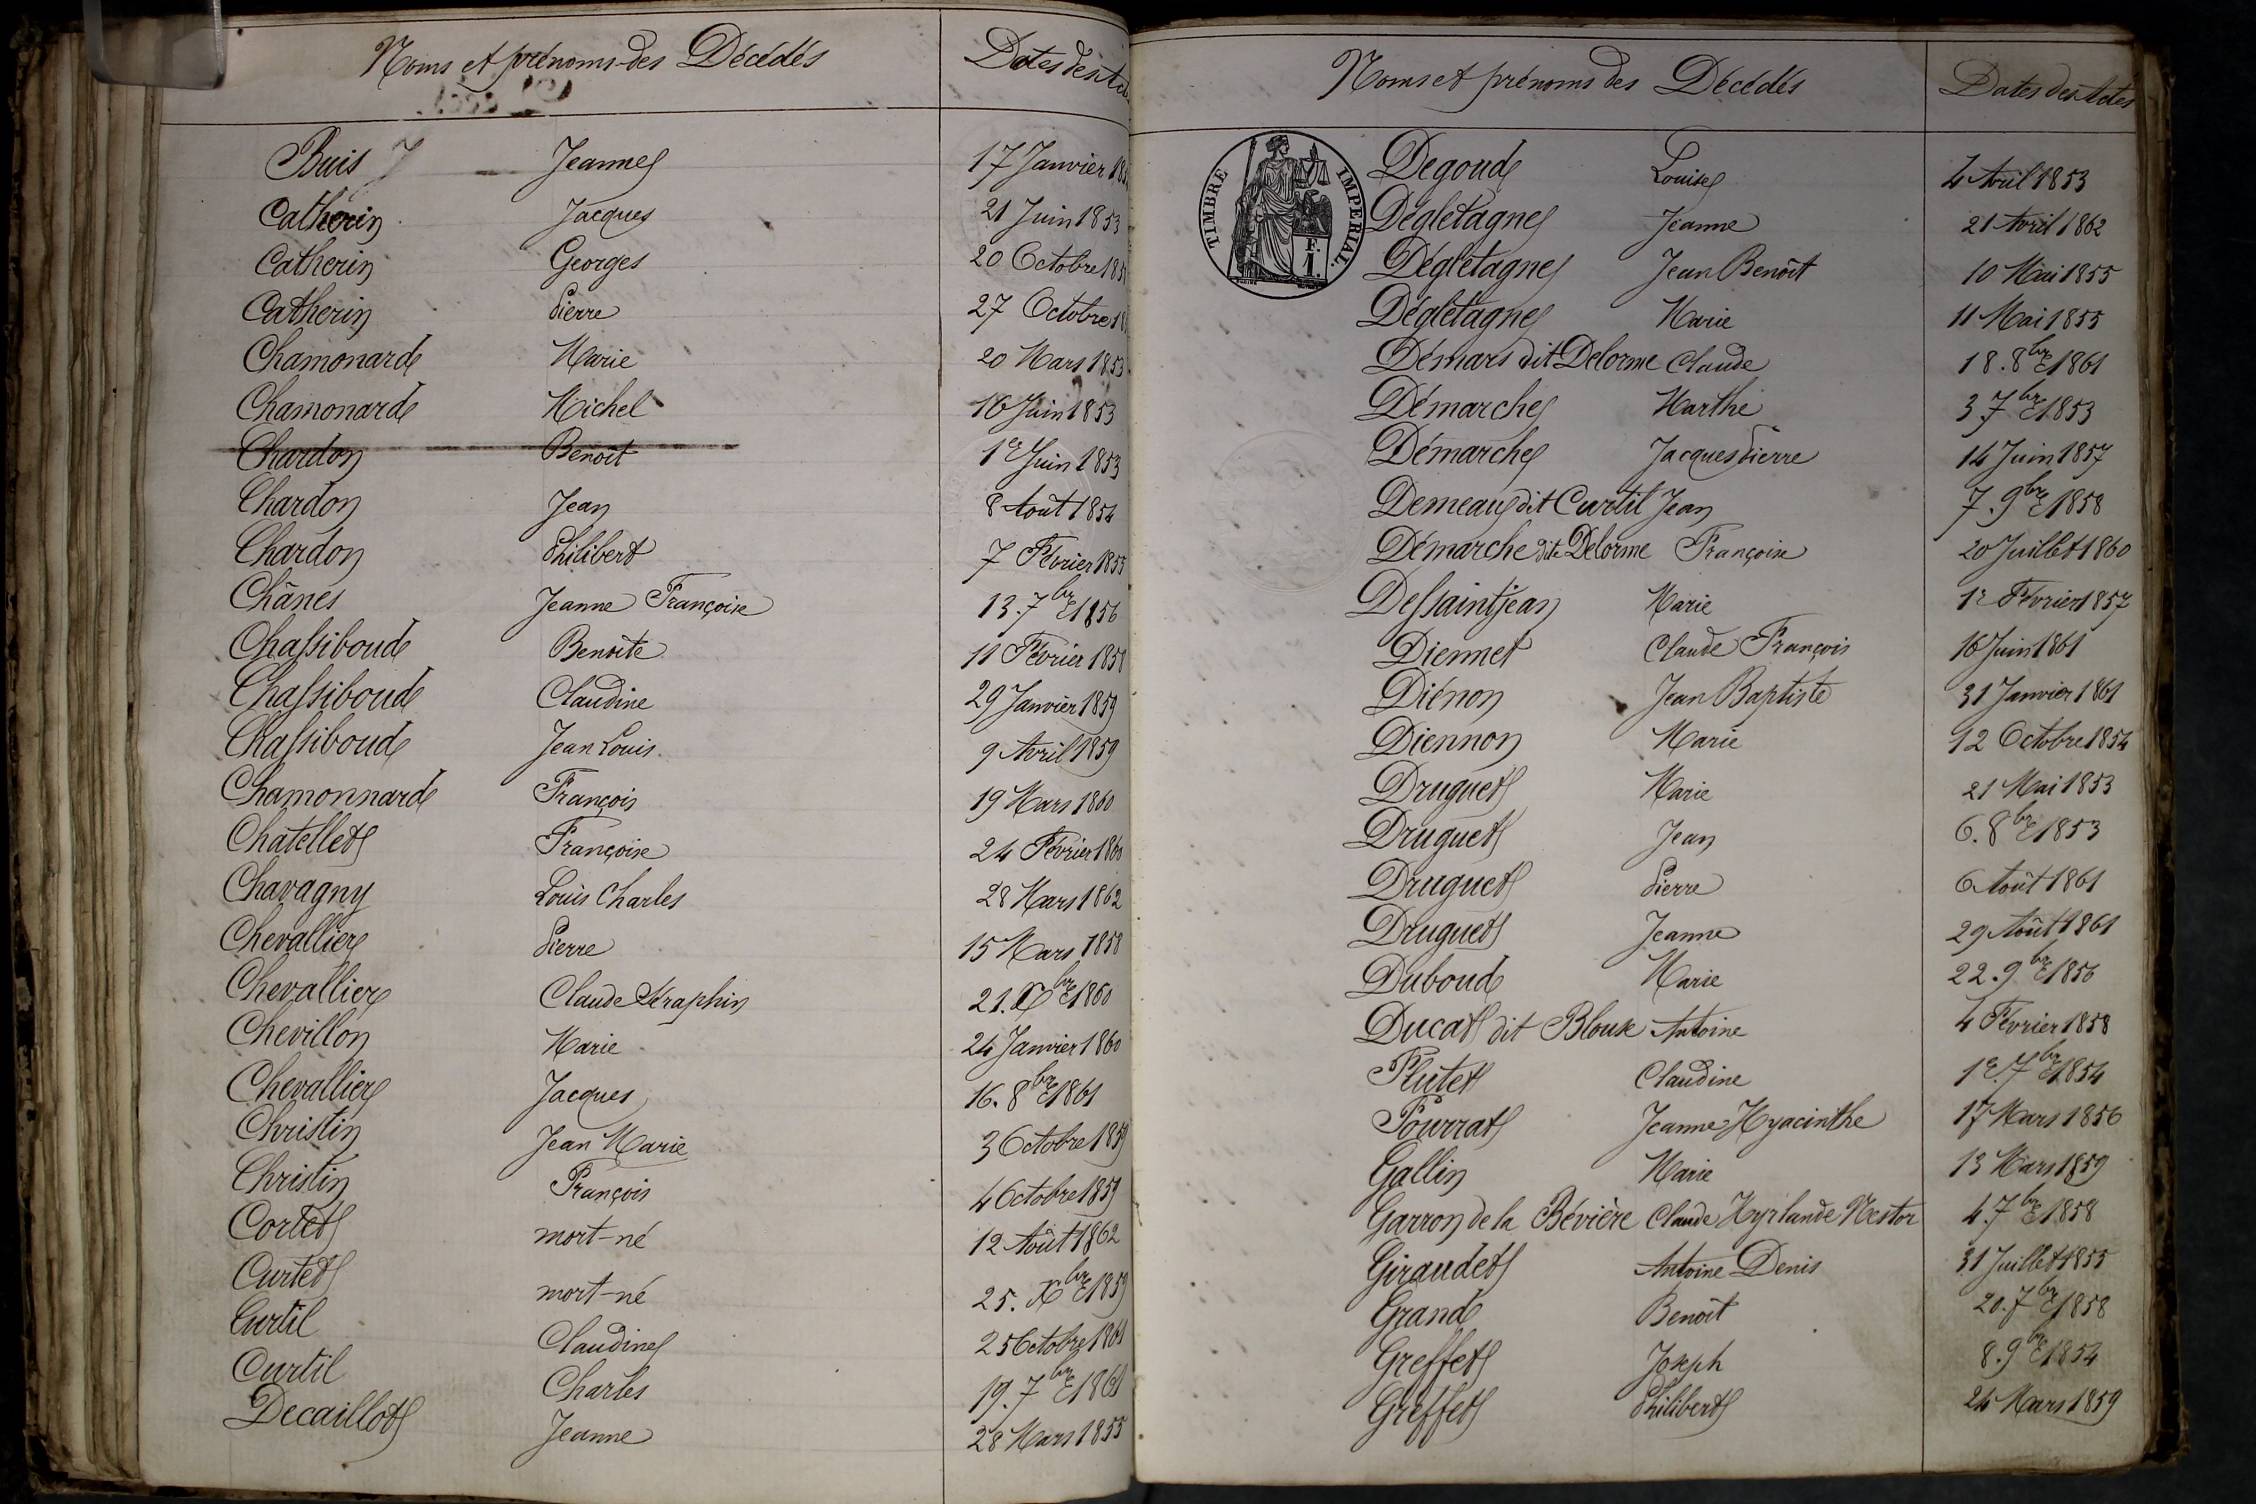 Noms et prénoms des Décédés Dates des Act
Buis Jeanne 17 Janvier 18
Catherin Jacques 21 Juin 1853
Catherin Georges 20 Octobre 185
Catherin Pierre 27 Octobre 18
Chamonard Marie 20 Mars 1853
Chamonard Michel 16 Juin 1853
Chardon Benoit 1er Juin 1853
Chardon Jean 8 Août 1854
Chardon Philibert 7 Février 1855
Chânes Jeanne Françoise 13. 7bre 1856
Chassiboud Benoîte 11 Février 1858
Chassiboud Claudine 29 Janvier 1859
Chassiboud Jean Louis 9 Avril 1859
Chamonnard François 19 Mars 1860
Chatellet Françoise 24 Février 1860
Chavagny Louis Charles 28 Mars 1862
Chevallier Pierre 15 Mars 1858
Chevallier Claude Séraphin 21. Xbre 1860
Chevillon Marie 24 Janvier 1860
Chevallier Jacques 16. 8bre 1861
Christin Jean Marie 3 Octobre 1859
Christin François 4 Octobre 1859
Cortet mort-né 12 Août 1862
Curtet mort-né 25. Xbre 1859
Curtil Claudine 25 Octobre 1861
Curtil Charles 19. 7bre 1861
Decaillot Jeanne 28 Mars 1855
Noms et prénoms des Décédés Dates des Actes
TIMBRE IMPERIAL.
F.
1.
Degoud Louise 4 Avril 1853
Dégletagne Jeanne 21 Avril 1862
Dégletagne Jean Benoît 10 Mai 1855
Dégletagne Marie 11 Mai 1855
Démars dit Delorme Claude 18. 8bre 1861
Démarche Marthe 3. 7bre 1853
Démarche Jacques Pierre 14 Juin 1857
Demeaux dit Curtil Jean 7. 9bre 1858
Démarche dite Delorme Françoise 20 Juillet 1860
Dessaintjean Marie 1er Février 1857
Diennet Claude François 16 Juin 1861
Diénon Jean Baptiste 31 Janvier 1861
Diennon Marie 12 Octobre 1854
Druguet Marie 21 Mai 1853
Druguet Jean 6. 8bre 1853
Druguet Pierre 6 Août 1861
Druguet Jeanne 29 Août 1861
Duboud Marie 22. 9bre 1856
Ducat dit Blouse Antoine 4 Février 1858
Flutet Claudine 1er. 7bre 1854
Pourrat Jeanne Hyacinthe 17 Mars 1856
Gallin Marie 13 Mars 1859
Garron de la Bévière Claude Nestor 4. 7bre 1858
Giraudet Antoine Denis 31 Juillet 1855
Grand Benoît 20. 7bre 1858
Greffet Joseph 8. 9bre 1854
Greffet Philibert 24 Mars 1859